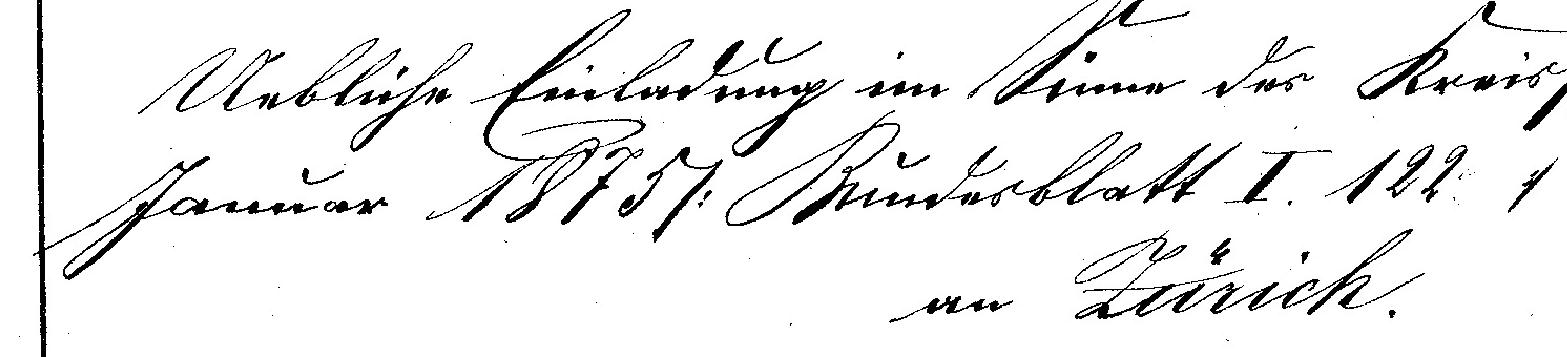 Uebliche Einladung im Sinne des Kreis
Januar 1875 /: Bundesblatt I. 122. :/
an Zürich.